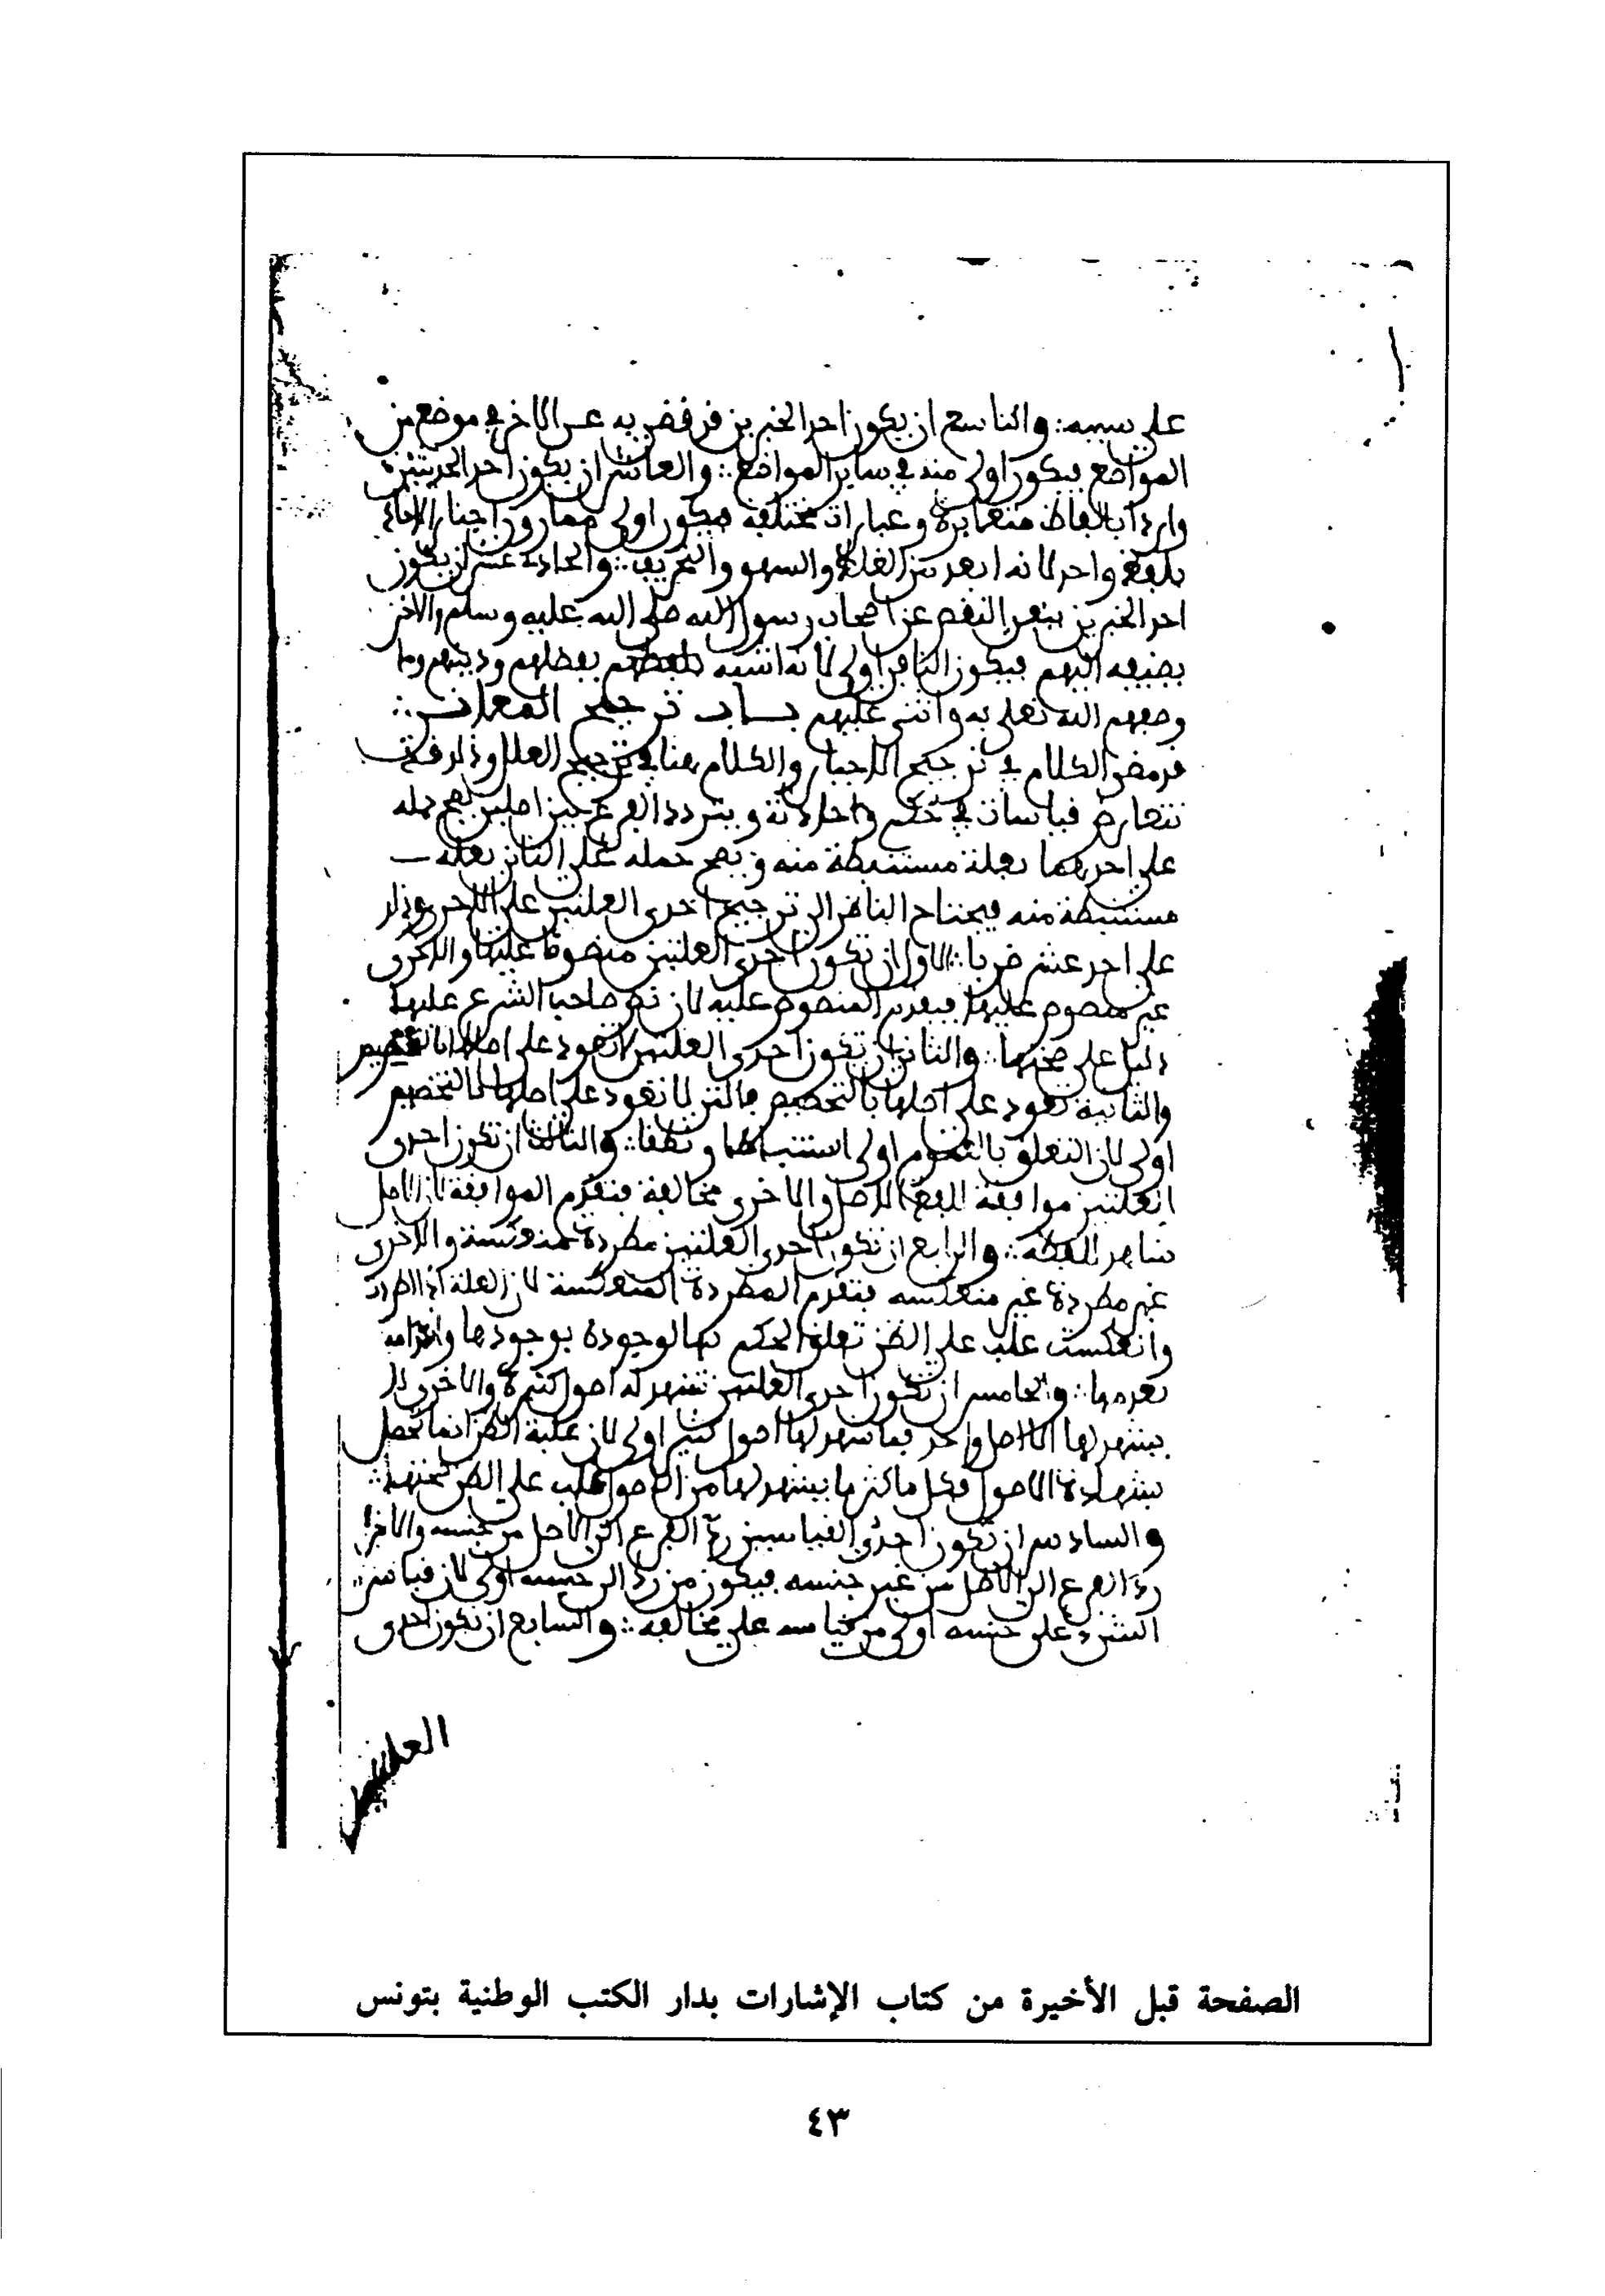 على سببه: والتاسع ان يكون احد الخبرين قد قضي به على الاخر في موضع من
المواضع فيكون اولى منه في ساير المواضع: والعاشر ان يكون احد الحديثين
واردا بالفاظ متغايرة وعبارات مختلفة فيكون اولى مما روي
بلفظ واحد لانه ابعد من الغلط والسهو والتحريف: والحادي عشر ان يكون
احد الخبرين ينفي النقص عن اصحاب رسول الله صلى الله عليه وسلم والاخر
يضيفه اليهم فيكون النافي اولى لانه اشبه بفضلهم ودينهم وما
وصفهم الله تعلى به واثنى عليهم باب ترجيح المعاني:
قد مضى الكلام في ترجيح الاخبار والكلام هنا في ترجيح العلل وذلك
تتعارض قياسان في حكم حادثة ويتردد الفرع بين اصلين يصح حمله
على احدهما بعلة مستنبطة منه ويصح حمله على الثاني بعلة
مستنبطة منه فيحتاح الناظر الى ترجيح احدى العلتين على الاخرى وذلك
على احد عشر ضربا: الاول ان تكون احدى العلتين منصوصا عليها والاخرى
غير منصوص عليها فيقدم المنصوص عليه لان نص صاحب الشرع عليها
دليل على صحتها: والثاني ان تكون احدى العلتين لا تعود على اصلها بالتخصيص
والثانية تعود على اصلها بالتخصيص فالتي لا تعود على اصلها بالتخصيص
اولى لان التعلق بالعموم اولى استنباطا ونطقا: والثالث ان تكون احدى
العلتين موافقة للفظ الاصل والاخرى مخالفة فتقدم الموافقة لان الاصل
شاهد للفظه: والرابع ان تكون احدى العلتين مطردة منعكسة والاخرى
غير مطردة غير منعكسه فتقدم المطردة المنعكسة لان العلة اذا اطردت
وانعكست غلب على الظن تعلق الحكم بها لوجوده بوجودها وانعدامه
بعدمها: والخامس ان تكون احدى العلتين تشهد لها اصول كثيرة والاخرى لا
يشهد لها الا اصل واحد فما شهد لها اصول كثير اولى لان غلبة الظن انما تحصل
بشهادة الاصول فكل ما كثر ما يشهد لها من الاصول غلب على الظن صحتها:
والسادس ان تكون احدى القياسين رد الفرع الى الاصل من جنسه والاخر
رد الفرع الى الاصل من غير جنسه فيكون من رد الى جنسه اولى لان قياس
الشيء على جنسه اولى من قياسه على مخالفه: والسابع ان تكون احدى
العلتين
الصفحة قبل الأخيرة من كتاب الإشارات بدار الكتب الوطنية بتونس
٤٣